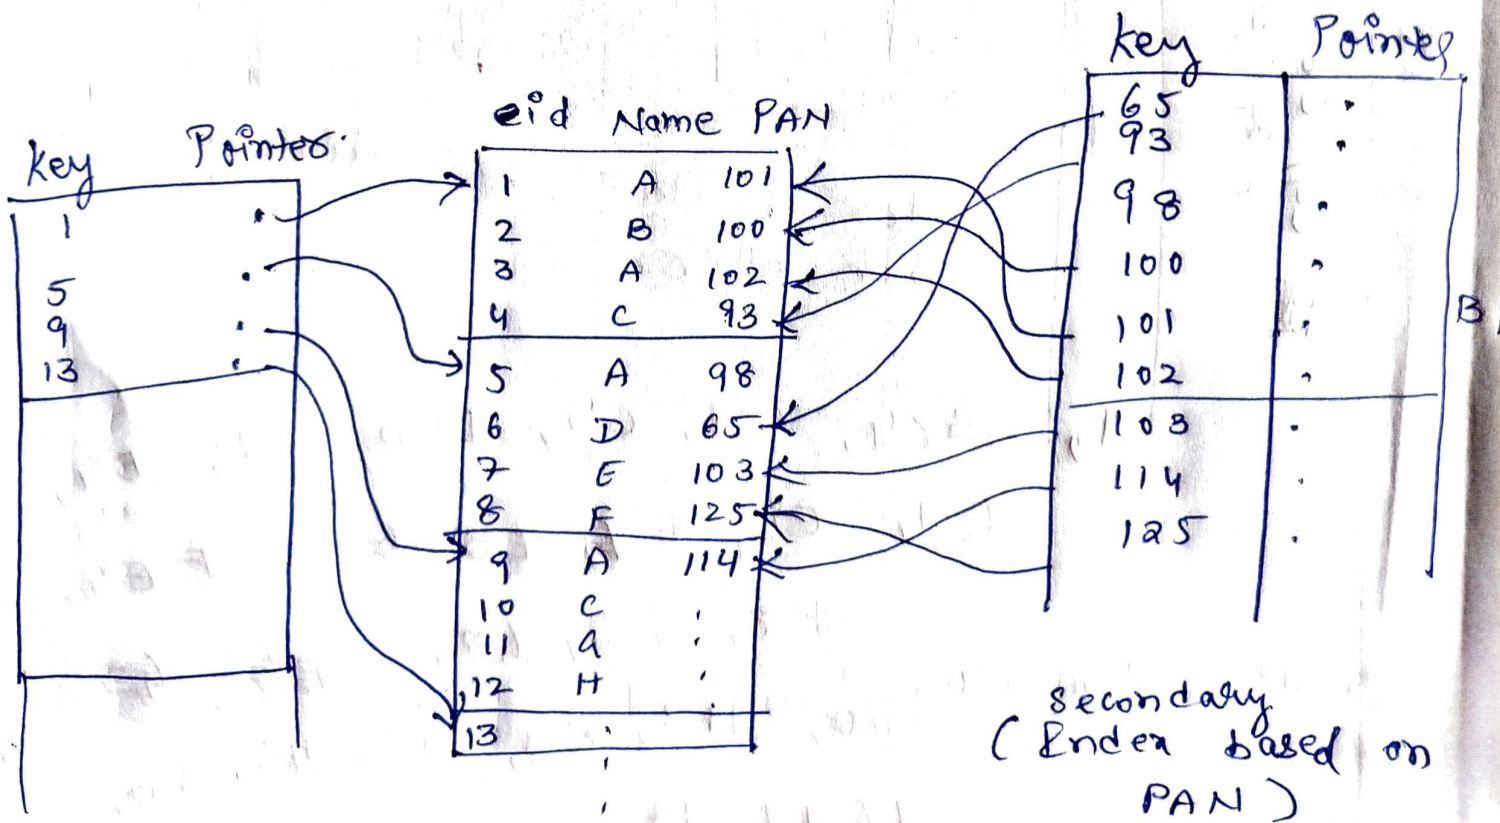 key Pointer
1
5
9
13
eid Name PAN
1 A 101
2 B 100
3 A 102
4 C 93
5 A 98
6 D 65
7 E 103
8 F 125
9 A 114
10 C
11 G
12 H
13
key Pointer
65
93
98
100
101
102
103
114
125
B
Secondary
(Index based on
PAN)